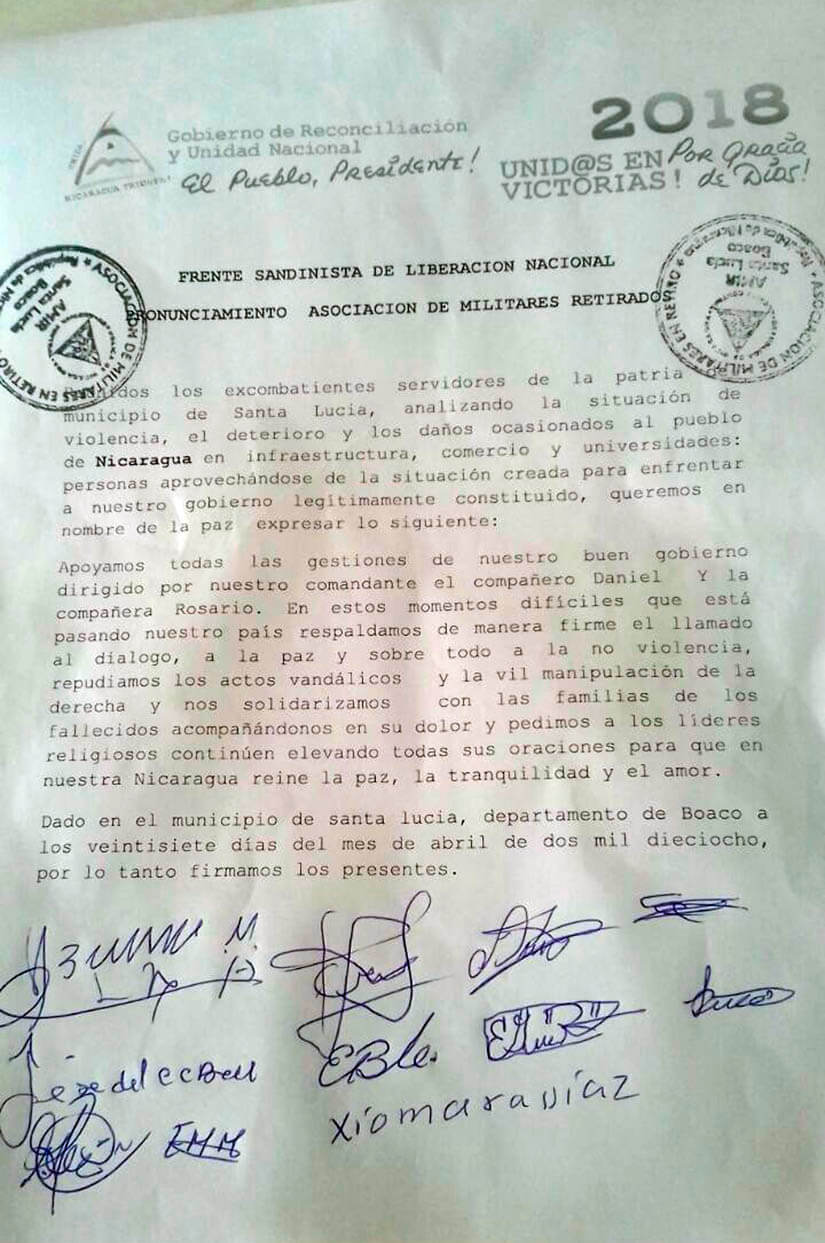 Gobierno de Reconciliación
y Unidad Nacional
El Pueblo, Presidente!
2018
UNID@S EN Por Gracia
VICTORIAS! de Dios!
NICARAGUA TRIUNFA!
ASOCIACION DE MILITARES EN RETIRO
AMIR
Santa Lucía
Boaco
ASOCIACION DE MILITARES EN RETIRO
AMIR
Santa Lucía
Boaco
FRENTE SANDINISTA DE LIBERACION NACIONAL
PRONUNCIAMIENTO ASOCIACION DE MILITARES RETIRADOS
los excombatientes servidores de la patria
municipio de Santa Lucia, analizando la situación de
violencia, el deterioro y los daños ocasionados al pueblo
de Nicaragua en infraestructura, comercio y universidades:
personas aprovechándose de la situación creada para enfrentar
a nuestro gobierno legítimamente constituido, queremos en
nombre de la paz expresar lo siguiente:
Apoyamos todas las gestiones de nuestro buen gobierno
dirigido por nuestro comandante el compañero Daniel Y la
compañera Rosario. En estos momentos difíciles que está
pasando nuestro país respaldamos de manera firme el llamado
al dialogo, a la paz y sobre todo a la no violencia,
repudiamos los actos vandálicos y la vil manipulación de la
derecha y nos solidarizamos con las familias de los
fallecidos acompañándonos en su dolor y pedimos a los líderes
religiosos continúen elevando todas sus oraciones para que en
nuestra Nicaragua reine la paz, la tranquilidad y el amor.
Dado en el municipio de santa lucia, departamento de Boaco a
los veintisiete días del mes de abril de dos mil dieciocho,
por lo tanto firmamos los presentes.
EMM
xiomara Díaz